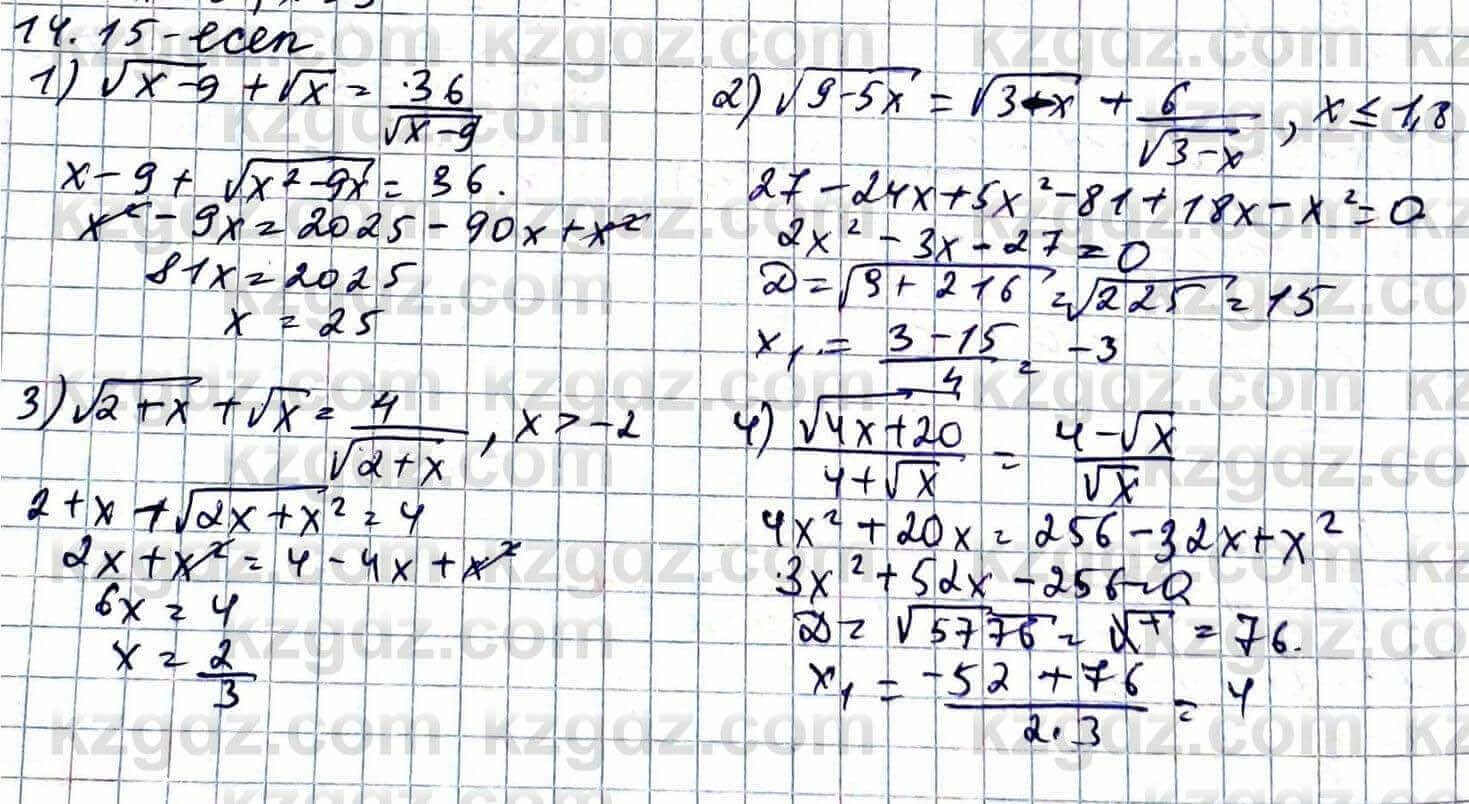 14.15-есеп
1) √(x-9) + √x = 36/√(x-9)
x-9+√(x²-9x) = 36.
x²-9x=2025-90x+x²
81x=2025
x=25
2) √(9-5x) = √(3-x) + 6/√(3-x), x≤1,8
27-24x+5x²-81+18x-x²=0
2x²-3x-27=0
D=√(9+216)=√225=15
x₁=(3-15)/4=-3
3) √(2+x)+√x=4/√(2+x), x>-2
2+x+√(2x+x²)=4
2x+x²=4-4x+x²
6x=4
x=2/3
4) √(4x+20)/(4+√x) = (4-√x)/√x
4x²+20x=256-32x+x²
3x²+52x-256=0
D=√5776= =76.
x₁=(-52+76)/(2·3)=4
kzgdz.com